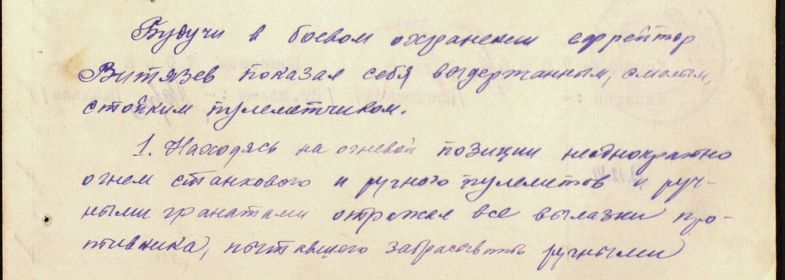 Будучи в боевом охранении ефрейтор
Витязев показал себя выдержанным, смелым,
стойким пулеметчиком.
1. Находясь на огневой позиции неоднократно
огнем станкового и ручного пулеметов и руч-
ными гранатами отражал все вылазки про-
тивника, пытавшего забрасывать ручными